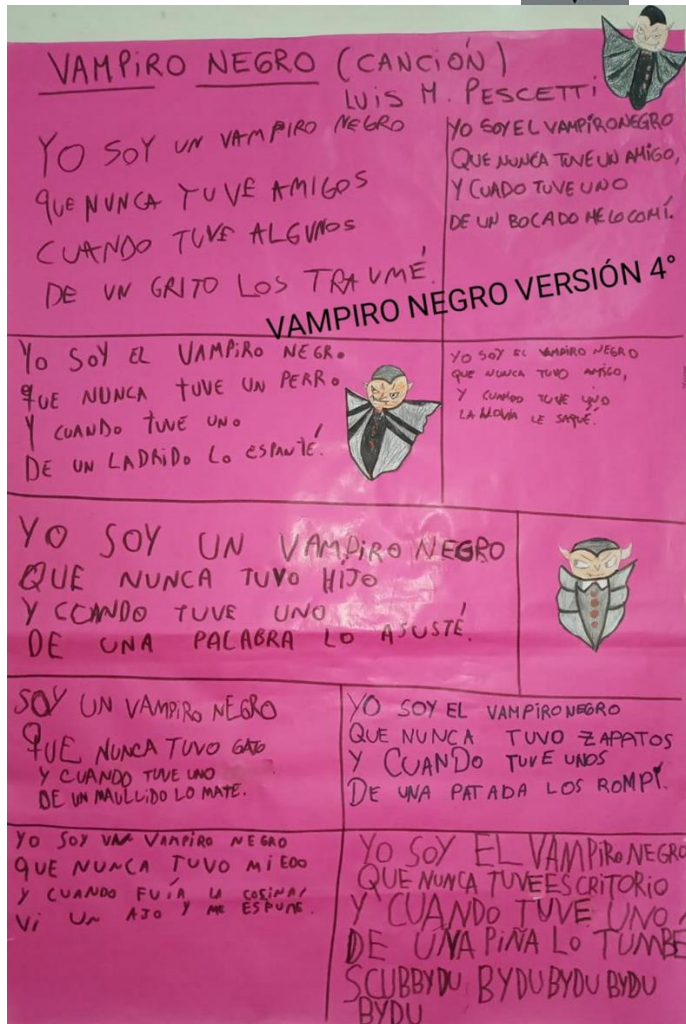 VAMPIRO NEGRO (CANCIÓN)
LUIS M. PESCETTI
YO SOY UN VAMPIRO NEGRO
QUE NUNCA TUVE AMIGOS
CUANDO TUVE ALGUNOS
DE UN GRITO LOS TRAUMÉ.
YO SOY EL VAMPIRO NEGRO
QUE NUNCA TUVE UN AMIGO,
Y CUADO TUVE UNO
DE UN BOCADO ME LO COMÍ.
VAMPIRO NEGRO VERSIÓN 4°
YO SOY EL VAMPIRO NEGRO
QUE NUNCA TUVE UN PERRO
Y CUANDO TUVE UNO
DE UN LADRIDO LO ESPANTÉ.
YO SOY EL VAMPIRO NEGRO
QUE NUNCA TUVO AMIGO,
Y CUANDO TUVE UNO
LA NOVIA LE SAQUÉ.
YO SOY UN VAMPIRO NEGRO
QUE NUNCA TUVO HIJO
Y CCANDO TUVE UNO
DE UNA PALABRA LO ASUSTÉ.
SOY UN VAMPIRO NEGRO
QUE NUNCA TUVO GATO
Y CUANDO TUVE UNO
DE UN MAULLIDO LO MATE.
YO SOY EL VAMPIRO NEGRO
QUE NUNCA TUVO ZAPATOS
Y CUANDO TUVE UNOS
DE UNA PATADA LOS ROMPÍ.
YO SOY UN VAMPIRO NEGRO
QUE NUNCA TUVO MIEDO
Y CUANDO FUÍA LA COSINA
VI UN AJO Y ME
YO SOY EL VAMPIRO NEGRO
QUE NUNCA TUVE ESCRITORIO
Y CUANDO TUVE UNO,
DE UNA PIÑA LO TUMBE
SCUBBYDU, BYDUBYDU BYDU
BYDU